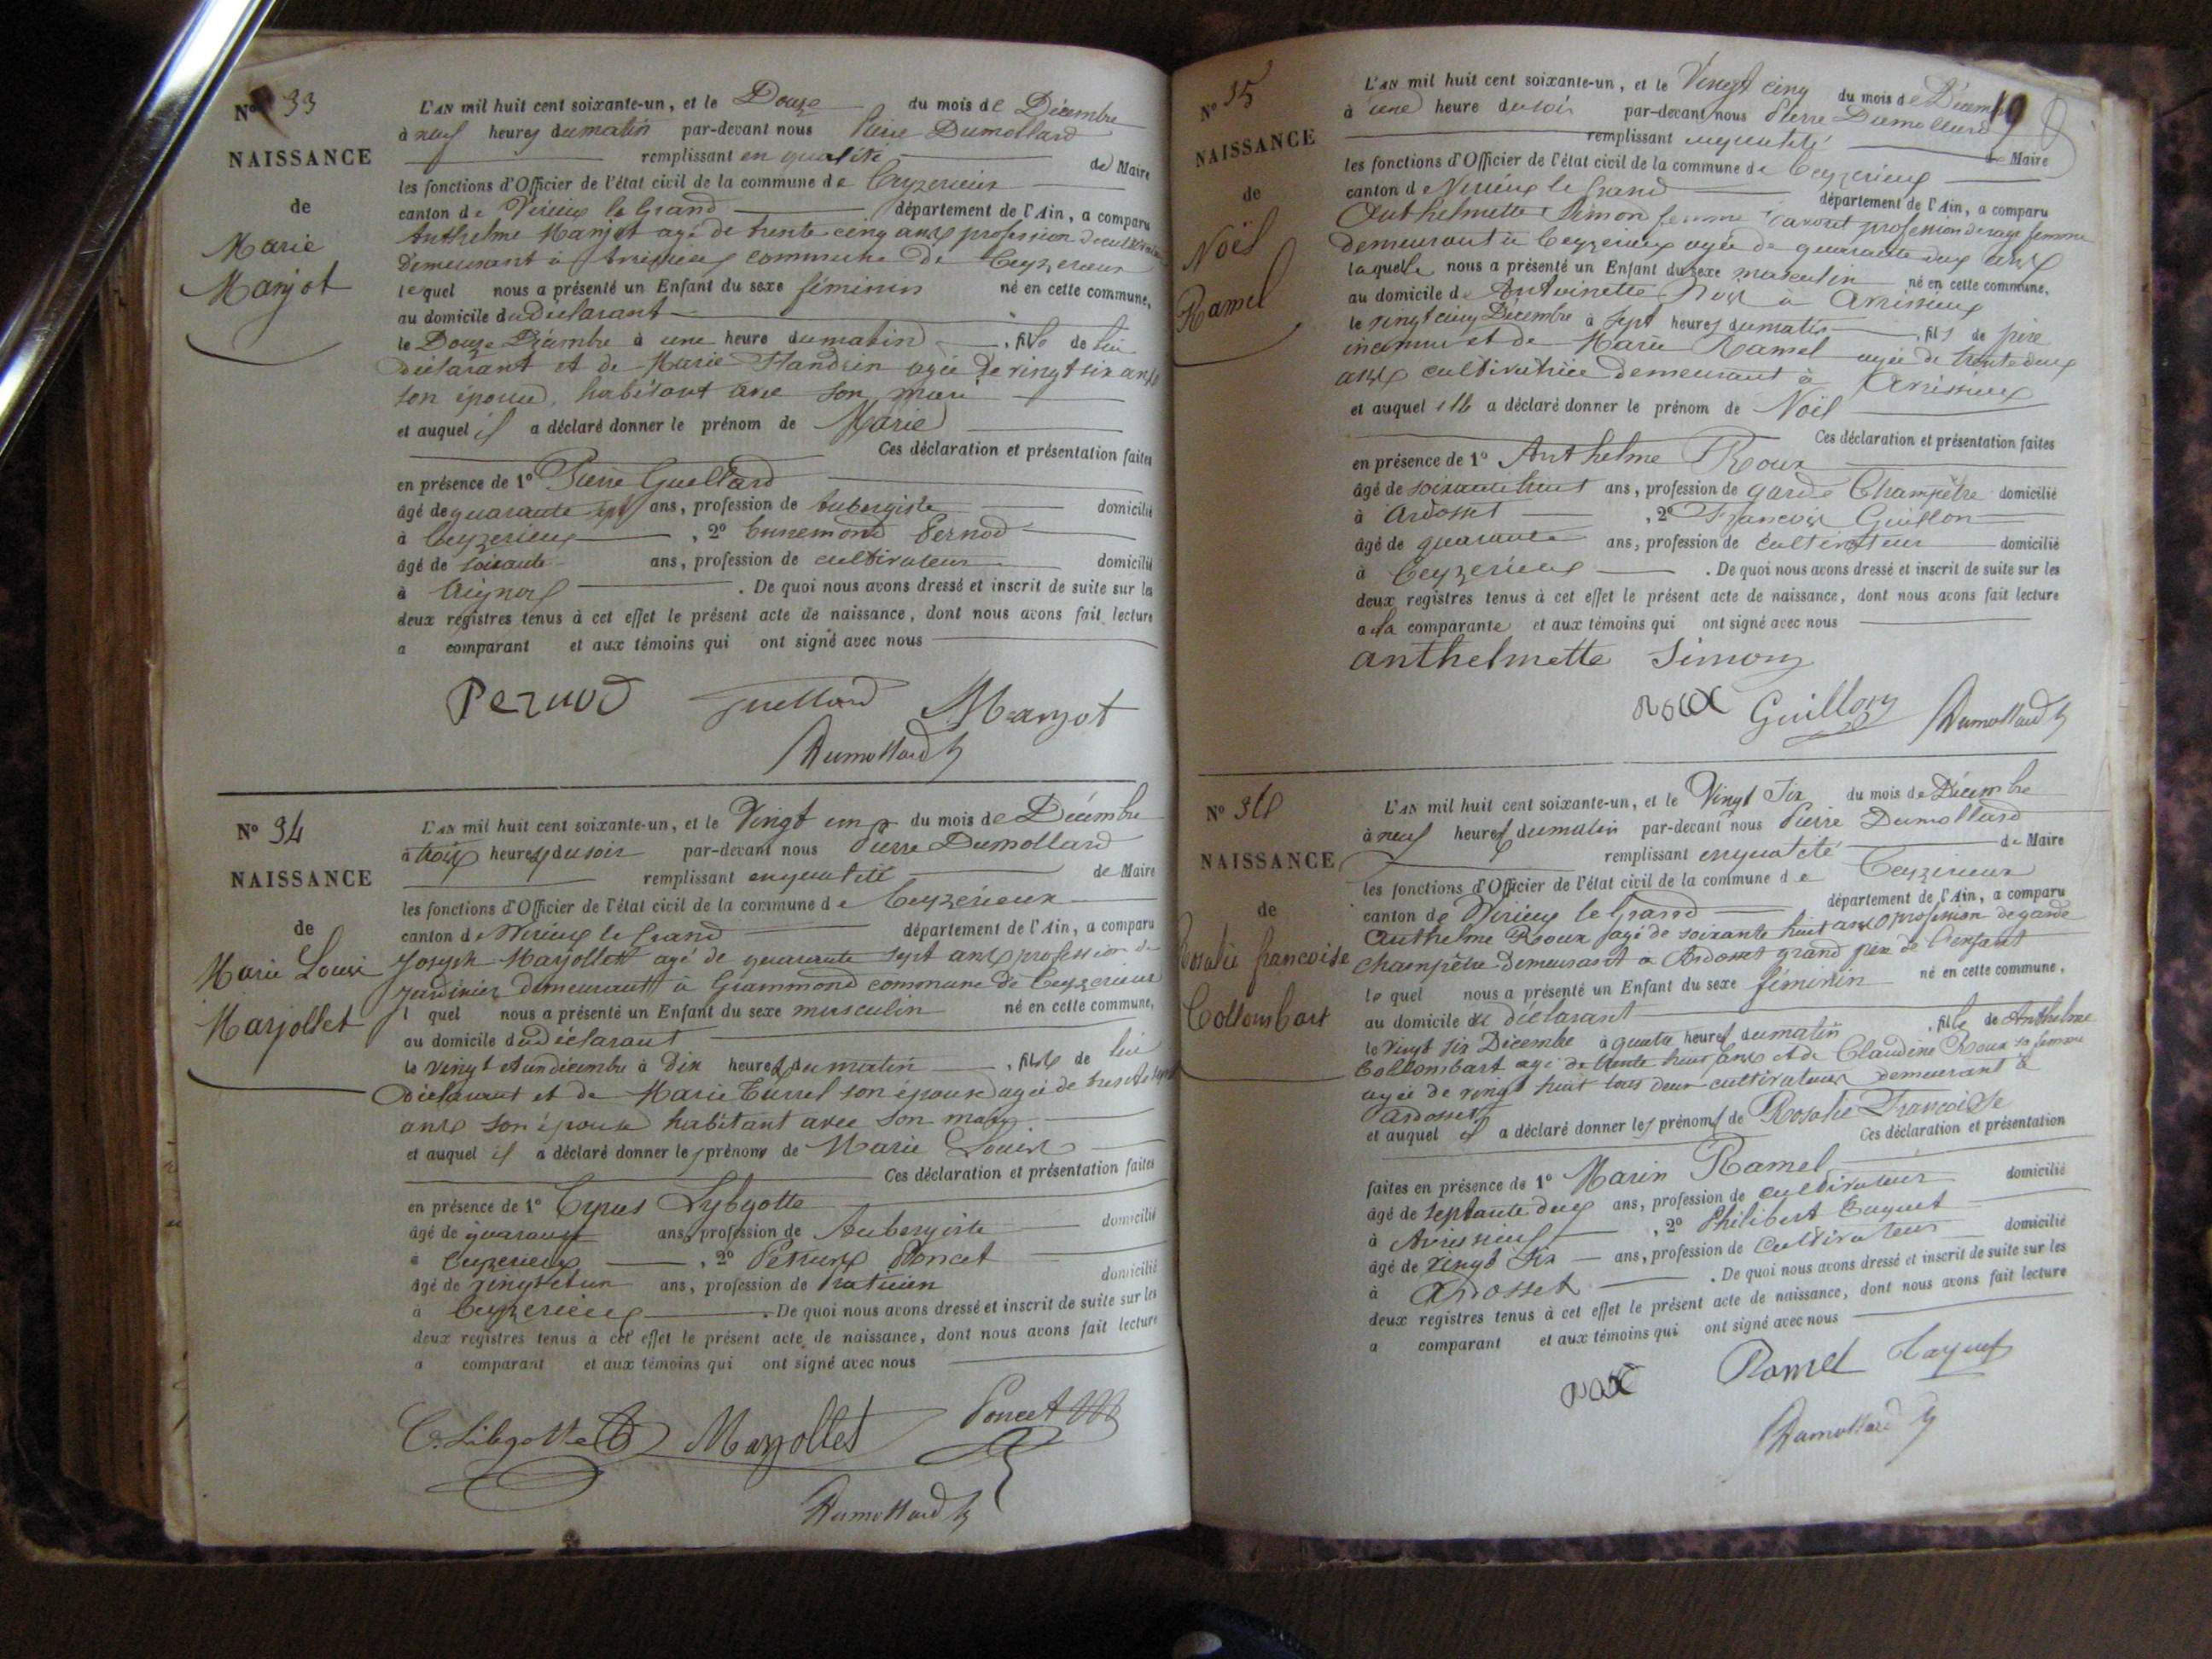 N° 33
NAISSANCE
de
Marie
Marjot
L'AN mil huit cent soixante-un, et le Douze du mois de Décembre
à neuf heures du matin par-devant nous Pierre Dumollard
remplissant en qualité de Maire
les fonctions d'Officier de l'état civil de la commune de Ceyzerieux
canton de Virieux le Grand département de l'Ain, a comparu
Anthelme Marjot agé de trente cinq ans profession de cultivateur
demeurant à commune de Ceyzerieux
lequel nous a présenté un Enfant du sexe féminin né en cette commune,
au domicile du déclarant
le Douze Décembre à une heure du matin, fille de lui
déclarant et de Marie Flandrin agée de vingt six ans
son épouse, habitant avec son mari
et auquel il a déclaré donner le prénom de Marie
Ces déclaration et présentation faites
en présence de 1° Pierre Guellard
âgé de quarante sept ans, profession de Aubergiste domicilié
à Ceyzerieux, 2° Ennemond Pernod
âgé de soixante ans, profession de cultivateur domicilié
à Aignoz. De quoi nous avons dressé et inscrit de suite sur les
deux registres tenus à cet effet le présent acte de naissance, dont nous avons fait lecture
a comparant et aux témoins qui ont signé avec nous
Pernod Guellard Marjot
Dumollard
N° 34
NAISSANCE
de
Marie Louise
Marjollet
L'AN mil huit cent soixante-un, et le Vingt un du mois de Décembre
à trois heures du soir par-devant nous Pierre Dumollard
remplissant en qualité de Maire
les fonctions d'Officier de l'état civil de la commune de Ceyzerieux
canton de Virieux le Grand département de l'Ain, a comparu
Joseph Marjollet agé de quarante sept ans profession de
jardinier demeurant à Grammond commune de Ceyzerieux
l quel nous a présenté un Enfant du sexe musculin né en cette commune,
au domicile du déclarant
le vingt et un décembre à Dix heures du matin, fille de lui
Déclarant et de Marie son épouse agée de trente sept
ans son épouse habitant avec son mari
et auquel il a déclaré donner les prénoms de Marie Louise
Ces déclaration et présentation faites
en présence de 1° Cyrus Lybgotte
âgé de quarante ans, profession de Aubergiste domicilié
à Ceyzerieux, 2° Poncet
âgé de vingt et un ans, profession de Praticien domicilié
à Ceyzerieux. De quoi nous avons dressé et inscrit de suite sur les
deux registres tenus à cet effet le présent acte de naissance, dont nous avons fait lecture
a comparant et aux témoins qui ont signé avec nous
C. Libgotte Marjollet Poncet
Dumollard
N° 35
NAISSANCE
de
Noël
Ramel
19
L'AN mil huit cent soixante-un, et le Vingt cinq du mois de Décembre
à une heure du soir par-devant nous Pierre Dumollard
remplissant en qualité de Maire
les fonctions d'Officier de l'état civil de la commune de Ceyzerieux
canton de Virieux le Grand département de l'Ain, a comparu
Anthelmette Simon femme profession de sage femme
demeurant à Ceyzerieux agée de quarante deux ans
laquelle nous a présenté un Enfant du sexe masculin né en cette commune,
au domicile d Antoinette à Avrissieux
le vingt cinq Décembre à sept heures du matin, fils de père
inconnu et de Marie Ramel agée de trente deux
ans cultivatrice demeurant à Avrissieux
et auquel elle a déclaré donner le prénom de Noël
Ces déclaration et présentation faites
en présence de 1° Anthelme Roux
âgé de soixante huit ans, profession de garde Champêtre domicilié
à Ardosset, 2° François Guillon
âgé de quarante ans, profession de cultivateur domicilié
à Ceyzerieux. De quoi nous avons dressé et inscrit de suite sur les
deux registres tenus à cet effet le présent acte de naissance, dont nous avons fait lecture
a la comparante et aux témoins qui ont signé avec nous
anthelmette Simon
roux Guillon Dumollard
N° 36
NAISSANCE
de
Rosalie francoise
Collombart
L'AN mil huit cent soixante-un, et le Vingt Six du mois de Décembre
à neuf heures du matin par-devant nous Pierre Dumollard
remplissant en qualité de Maire
les fonctions d'Officier de l'état civil de la commune de Ceyzerieux
canton de Virieux le Grand département de l'Ain, a comparu
Anthelme Roux agé de soixante huit ans profession de garde
champêtre demeurant à Ardosset grand père de l'enfant
le quel nous a présenté un Enfant du sexe féminin né en cette commune,
au domicile du déclarant
le vingt six Décembre à quatre heures du matin, fille de Anthelme
Collombart agé de trente huit ans et de Claudine Roux sa femme
agée de vingt huit tous deux cultivateurs demeurant à
Ardosset
et auquel il a déclaré donner les prénoms de Rosalie Françoise
Ces déclaration et présentation
faites en présence de 1° Marin Ramel
âgé de septante deux ans, profession de cultivateur domicilié
à Avrissieux, 2° Philibert
âgé de vingt six ans, profession de Cultivateur domicilié
à Ardosset. De quoi nous avons dressé et inscrit de suite sur les
deux registres tenus à cet effet le présent acte de naissance, dont nous avons fait lecture
a comparant et aux témoins qui ont signé avec nous
roux Ramel
Dumollard